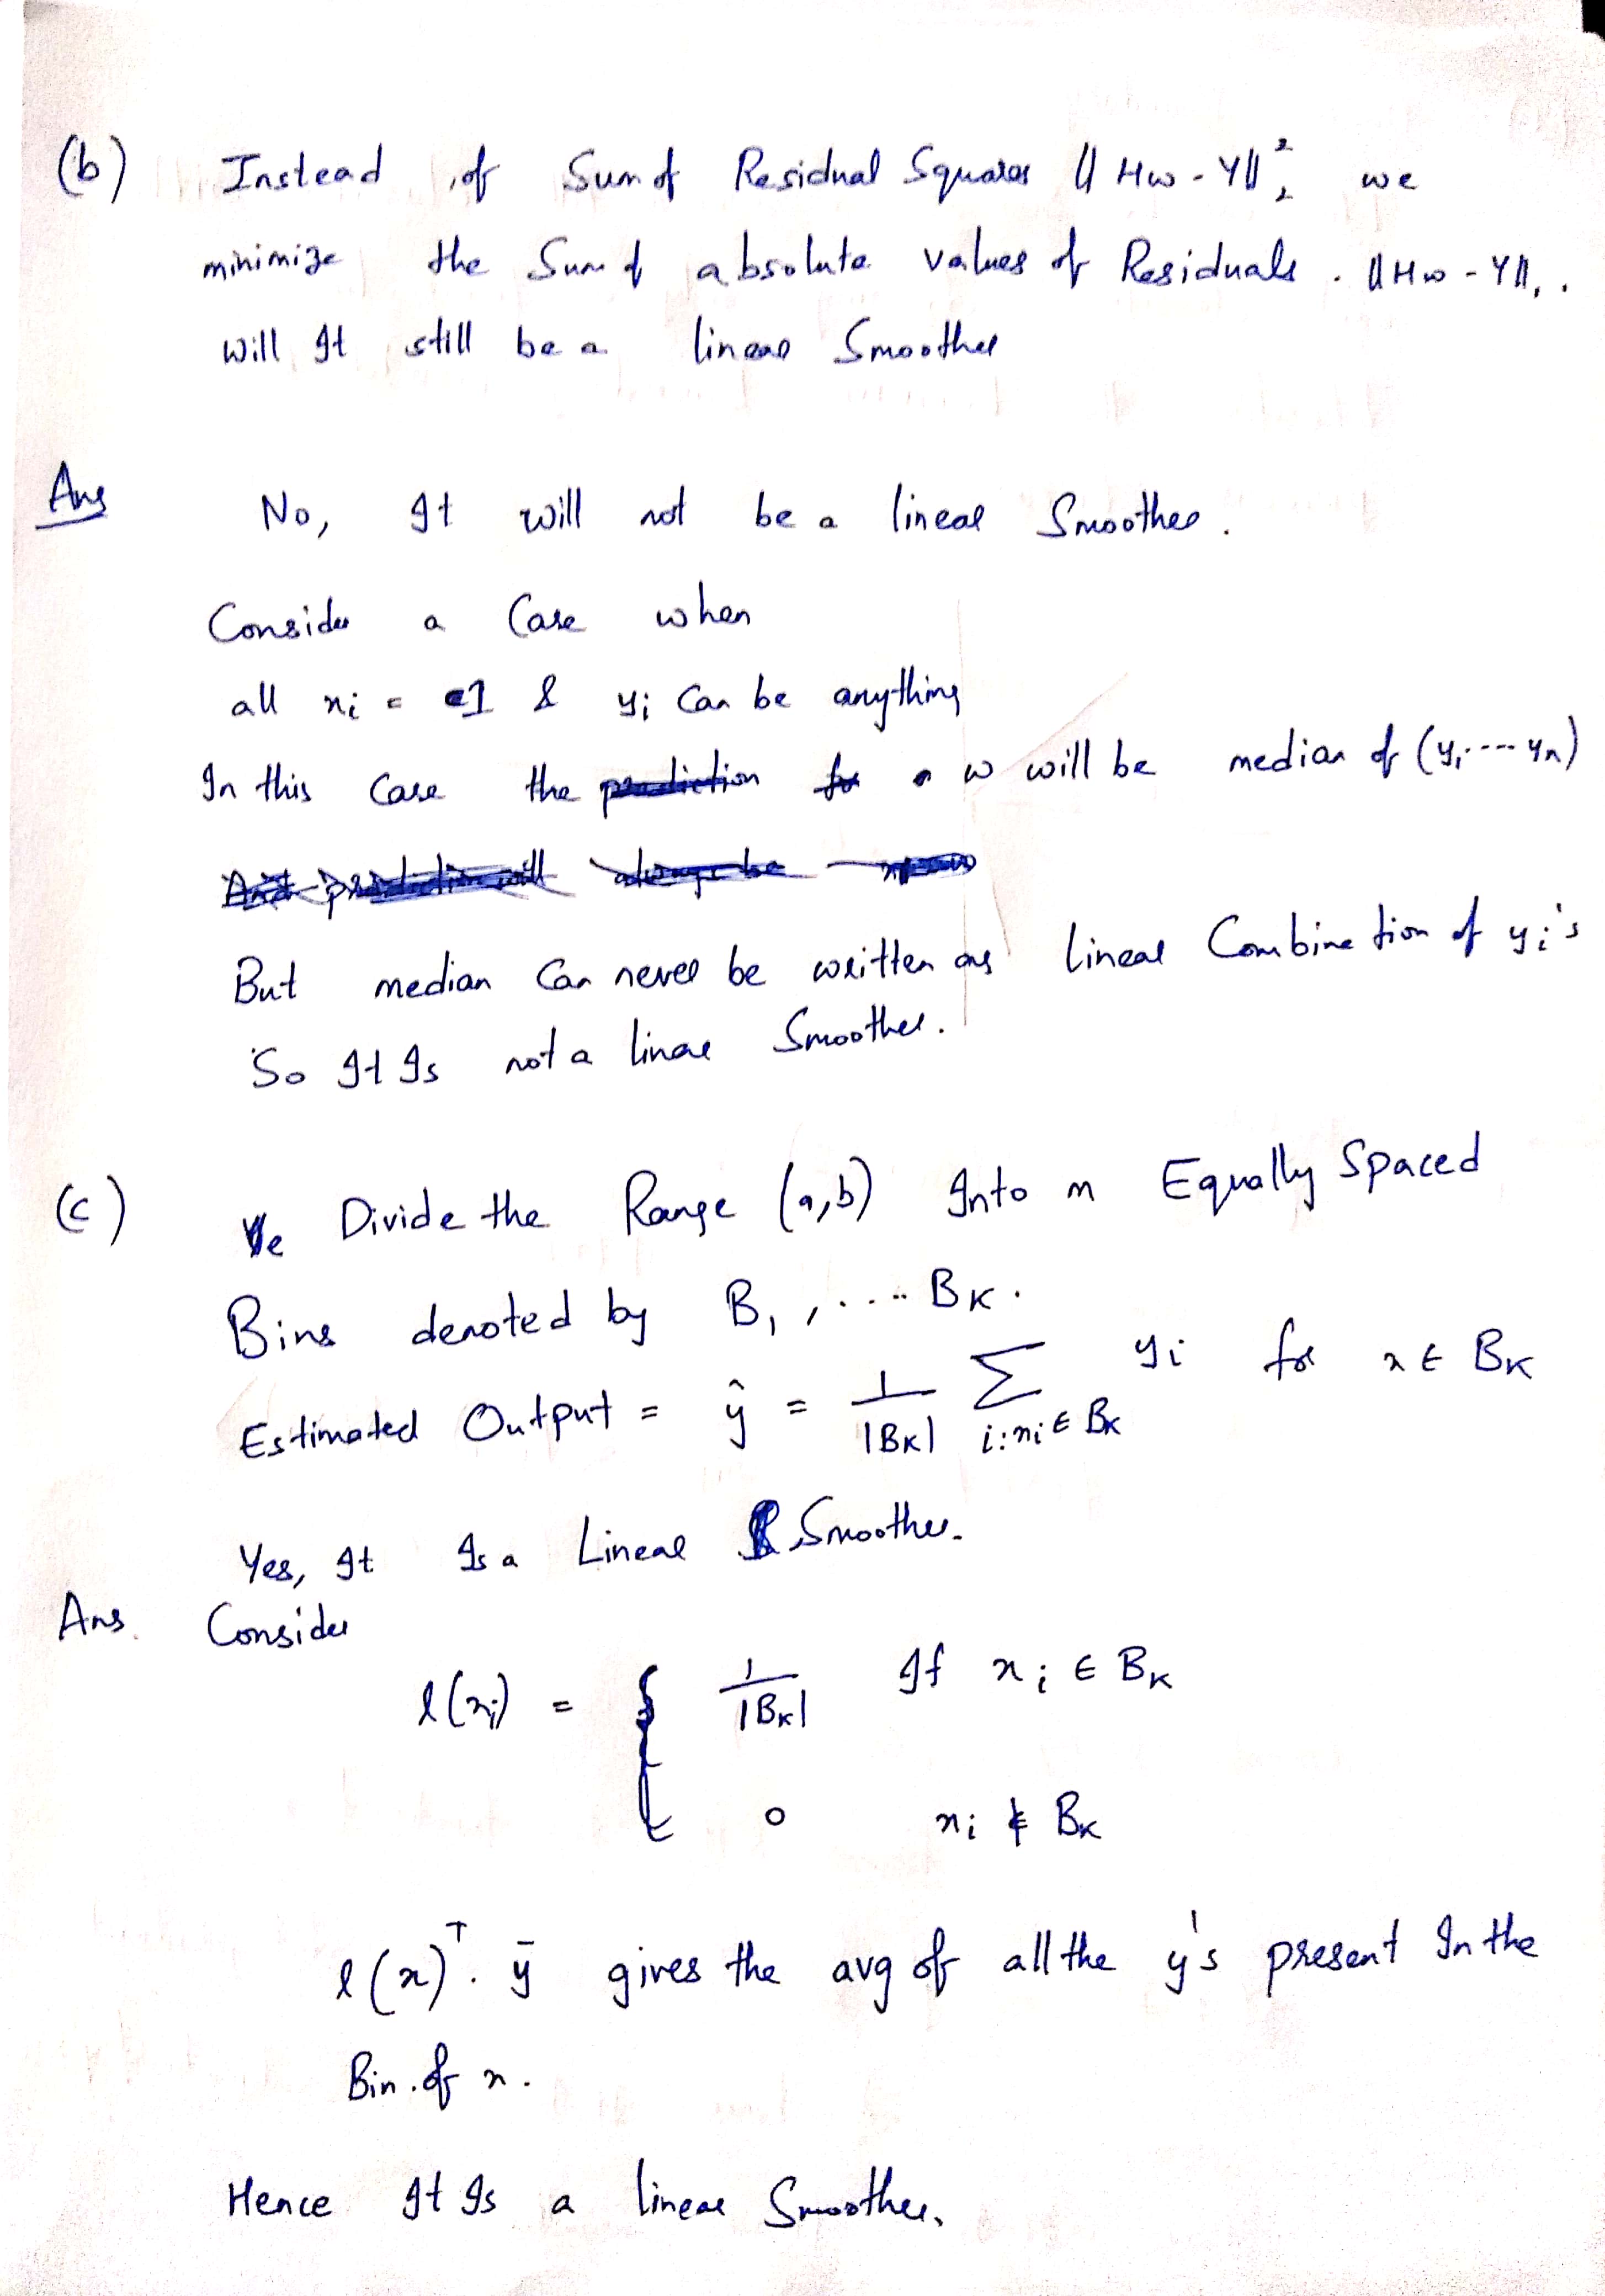 (b) Instead of Sum of Residual Squares ||Hw - Y||₂² we
minimize the Sum of absolute values of Residuals. ||Hw - Y||₁.
will It still be a linear Smoother
Ans No, It will not be a linear Smoother.
Consider a Case when
all xi = 1 & yi Can be anything
In this Case the prediction for w will be median of (yi ---- yn)
But median Can never be written as linear Combination of yi's
So It Is not a linear Smoother.
(c) We Divide the Range (a,b) Into m Equally Spaced
Bins denoted by B1, ..... BK.
Estimated Output = ŷ = 1/|BK| Σ i:xi∈BK yi for x ∈ BK
Yes, It Is a Linear Smoother.
Ans. Consider
l(xi) = { 1/|BK| If xi ∈ BK
0 xi ∉ BK
l(x)ᵀ. ȳ gives the avg of all the y's present In the
Bin of x.
Hence It Is a linear Smoother.